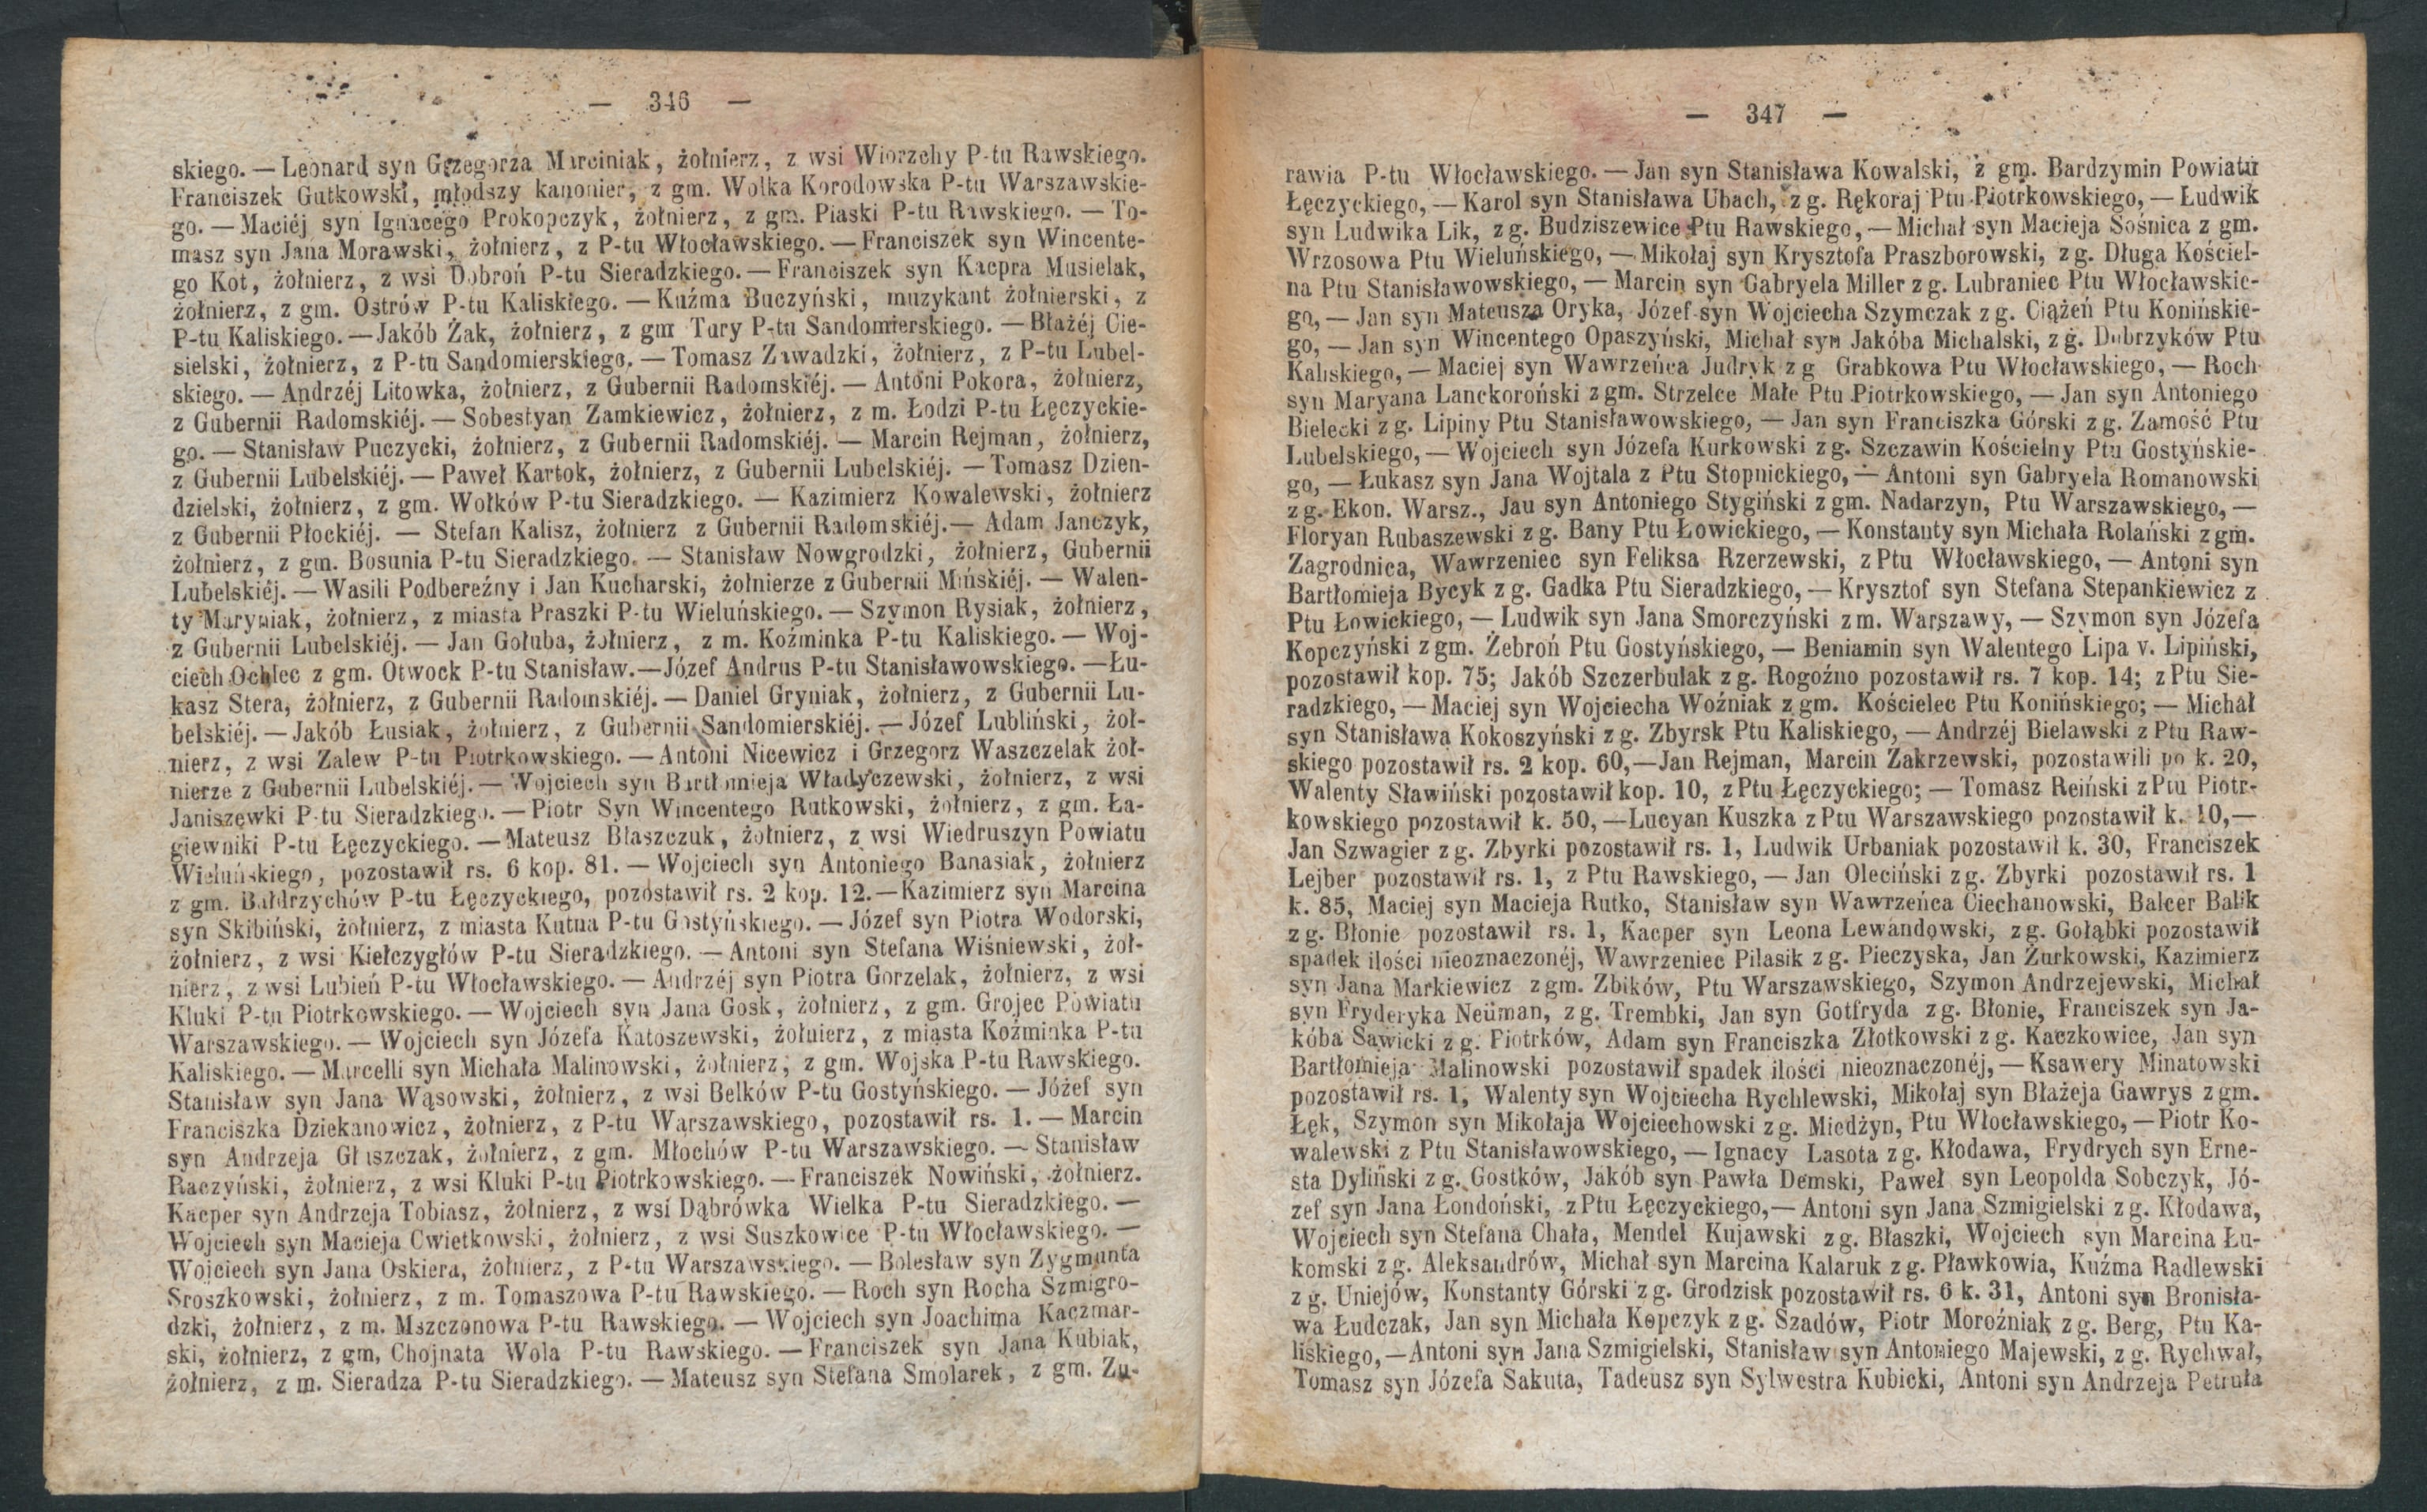 — 346 —
skiego. — Leonard syn Grzegorza Marciniak, żołnierz, z wsi Wiorzchy P-tu Rawskiego.
Franciszek Gutkowski, młodszy kanonier, z gm. Wolka Korodowska P-tu Warszawskie-
go. — Maciéj syn Ignacego Prokopczyk, żołnierz, z gm. Piaski P-tu Rawskiego. — To-
masz syn Jana Morawski, żołnierz, z P-tu Włocławskiego. — Franciszek syn Wincente-
go Kot, żołnierz, z wsi Dobroń P-tu Sieradzkiego. — Franciszek syn Kacpra Musielak,
żołnierz, z gm. Ostrów P-tu Kaliskiego. — Kuźma Buczyński, muzykant żołnierski, z
P-tu Kaliskiego. — Jakób Żak, żołnierz, z gm Tury P-tu Sandomierskiego. — Błażéj Cie-
sielski, żołnierz, z P-tu Sandomierskiego. — Tomasz Zawadzki, żołnierz, z P-tu Lubel-
skiego. — Andrzéj Litowka, żołnierz, z Gubernii Radomskiéj. — Antoni Pokora, żołnierz,
z Gubernii Radomskiéj. — Sobestyan Zamkiewicz, żołnierz, z m. Łodzi P-tu Łęczyckie-
go. — Stanisław Puczycki, żołnierz, z Gubernii Radomskiéj. — Marcin Rejman, żołnierz,
z Gubernii Lubelskiéj. — Paweł Kartok, żołnierz, z Gubernii Lubelskiéj. — Tomasz Dzien-
dzielski, żołnierz, z gm. Wołków P-tu Sieradzkiego. — Kazimierz Kowalewski, żołnierz
z Gubernii Płockiéj. — Stefan Kalisz, żołnierz z Gubernii Radomskiéj. — Adam Janczyk,
żołnierz, z gm. Bosunia P-tu Sieradzkiego. — Stanisław Nowgrodzki, żołnierz, Gubernii
Lubelskiéj. — Wasili Podbereźny i Jan Kucharski, żołnierze z Gubernii Mińskiéj. — Walen-
ty Maryniak, żołnierz, z miasta Praszki P-tu Wieluńskiego. — Szymon Rysiak, żołnierz,
z Gubernii Lubelskiéj. — Jan Gołuba, żołnierz, z m. Koźminka P-tu Kaliskiego. — Woj-
ciech Ochlec z gm. Otwock P-tu Stanisław. — Józef Andrus P-tu Stanisławowskiego. — Łu-
kasz Stera, żołnierz, z Gubernii Radomskiéj. — Daniel Gryniak, żołnierz, z Gubernii Lu-
belskiéj. — Jakób Łusiak, żołnierz, z Gubernii Sandomierskiéj. — Józef Lubliński, żoł-
nierz, z wsi Zalew P-tu Piotrkowskiego. — Antoni Nicewicz i Grzegorz Waszczelak żoł-
nierze z Gubernii Lubelskiéj. — Wojciech syn Bartłomieja Władyczewski, żołnierz, z wsi
Janiszewki P-tu Sieradzkiego. — Piotr Syn Wincentego Rutkowski, żołnierz, z gm. Ła-
giewniki P-tu Łęczyckiego. — Mateusz Blaszczuk, żołnierz, z wsi Wiedruszyn Powiatu
Wieluńskiego, pozostawił rs. 6 kop. 81. — Wojciech syn Antoniego Banasiak, żołnierz
z gm. Bałdrzychów P-tu Łęczyckiego, pozostawił rs. 2 kop. 12. — Kazimierz syn Marcina
syn Skibiński, żołnierz, z miasta Kutna P-tu Gostyńskiego. — Józef syn Piotra Wodorski,
żołnierz, z wsi Kiełczygłów P-tu Sieradzkiego. — Antoni syn Stefana Wiśniewski, żoł-
nierz, z wsi Lubień P-tu Włocławskiego. — Andrzéj syn Piotra Gorzelak, żołnierz, z wsi
Kluki P-tu Piotrkowskiego. — Wojciech syn Jana Gosk, żołnierz, z gm. Grojec Powiatu
Warszawskiego. — Wojciech syn Józefa Katoszewski, żołnierz, z miasta Koźminka P-tu
Kaliskiego. — Marcelli syn Michała Malinowski, żołnierz, z gm. Wojska P-tu Rawskiego.
Stanisław syn Jana Wąsowski, żołnierz, z wsi Belków P-tu Gostyńskiego. — Józef syn
Franciszka Dziekanowicz, żołnierz, z P-tu Warszawskiego, pozostawił rs. 1. — Marcin
syn Andrzeja Głuszczak, żołnierz, z gm. Młochów P-tu Warszawskiego. — Stanisław
Raczyński, żołnierz, z wsi Kluki P-tu Piotrkowskiego. — Franciszek Nowiński, żołnierz.
Kacper syn Andrzeja Tobiasz, żołnierz, z wsi Dąbrówka Wielka P-tu Sieradzkiego. —
Wojciech syn Macieja Cwietkowski, żołnierz, z wsi Suszkowice P-tu Włocławskiego. —
Wojciech syn Jana Oskiera, żołnierz, z P-tu Warszawskiego. — Bolesław syn Zygmunta
Sroszkowski, żołnierz, z m. Tomaszowa P-tu Rawskiego. — Roch syn Rocha Szmigro-
dzki, żołnierz, z m. Mszczonowa P-tu Rawskiego. — Wojciech syn Joachima Kaczmar-
ski, żołnierz, z gm, Chojnata Wola P-tu Rawskiego. — Franciszek syn Jana Kubiak,
żołnierz, z m. Sieradza P-tu Sieradzkiego. — Mateusz syn Stefana Smolarek, z gm. Zu-
— 347 —
rawia P-tu Włocławskiego. — Jan syn Stanisława Kowalski, z gm. Bardzymin Powiatu
Łęczyckiego, — Karol syn Stanisława Ubach, z g. Rękoraj Ptu Piotrkowskiego, — Ludwik
syn Ludwika Lik, z g. Budziszewice Ptu Rawskiego, — Michał syn Macieja Sośnica z gm.
Wrzosowa Ptu Wieluńskiego, — Mikołaj syn Krysztofa Praszborowski, z g. Długa Kościel-
na Ptu Stanisławowskiego, — Marcin syn Gabryela Miller z g. Lubraniec Ptu Włocławskie-
go, — Jan syn Mateusza Oryka, Józef syn Wojciecha Szymczak z g. Ciążeń Ptu Konińskie-
go, — Jan syn Wincentego Opaszyński, Michał syn Jakóba Michalski, z g. Dobrzyków Ptu
Kaliskiego, — Maciej syn Wawrzeńca Judryk z g Grabkowa Ptu Włocławskiego, — Roch
syn Maryana Lanckoroński z gm. Strzelce Małe Ptu Piotrkowskiego, — Jan syn Antoniego
Bielecki z g. Lipiny Ptu Stanisławowskiego, — Jan syn Franciszka Górski z g. Zamość Ptu
Lubelskiego, — Wojciech syn Józefa Kurkowski z g. Szczawin Kościelny Ptu Gostyńskie-
go, — Łukasz syn Jana Wojtala z Ptu Stopnickiego, — Antoni syn Gabryela Romanowski
z g. Ekon. Warsz., Jau syn Antoniego Stygiński z gm. Nadarzyn, Ptu Warszawskiego, —
Floryan Rubaszewski z g. Bany Ptu Łowickiego, — Konstanty syn Michała Rolański z gm.
Zagrodnica, Wawrzeniec syn Feliksa Rzerzewski, z Ptu Włocławskiego, — Antoni syn
Bartłomieja Bycyk z g. Gadka Ptu Sieradzkiego, — Krysztof syn Stefana Stepankiewicz z
Ptu Łowickiego, — Ludwik syn Jana Smorczyński z m. Warszawy, — Szymon syn Józefa
Kopczyński z gm. Żebroń Ptu Gostyńskiego, — Beniamin syn Walentego Lipa v. Lipiński,
pozostawił kop. 75; Jakób Szczerbulak z g. Rogoźno pozostawił rs. 7 kop. 14; z Ptu Sie-
radzkiego, — Maciej syn Wojciecha Woźniak z gm. Kościelec Ptu Konińskiego; — Michał
syn Stanisława Kokoszyński z g. Zbyrsk Ptu Kaliskiego, — Andrzéj Bielawski z Ptu Raw-
skiego pozostawił rs. 2 kop. 60, — Jan Rejman, Marcin Zakrzewski, pozostawili po k. 20,
Walenty Sławiński pozostawił kop. 10, z Ptu Łęczyckiego; — Tomasz Reiński z Ptu Piotr-
kowskiego pozostawił k. 50, — Lucyan Kuszka z Ptu Warszawskiego pozostawił k. 10, —
Jan Szwagier z g. Zbyrki pozostawił rs. 1, Ludwik Urbaniak pozostawił k. 30, Franciszek
Lejber pozostawił rs. 1, z Ptu Rawskiego, — Jan Oleciński z g. Zbyrki pozostawił rs. 1
k. 85, Maciej syn Macieja Rutko, Stanisław syn Wawrzeńca Ciechanowski, Balcer Balik
z g. Błonie pozostawił rs. 1, Kacper syn Leona Lewandowski, z g. Gołąbki pozostawił
spadek ilości nieoznaczonéj, Wawrzeniec Pilasik z g. Pieczyska, Jan Żurkowski, Kazimierz
syn Jana Markiewicz z gm. Zbików, Ptu Warszawskiego, Szymon Andrzejewski, Michał
syn Fryderyka Neüman, z g. Trembki, Jan syn Gotfryda z g. Błonie, Franciszek syn Ja-
kóba Sawicki z g. Piotrków, Adam syn Franciszka Złotkowski z g. Kaczkowice, Jan syn
Bartłomieja Malinowski pozostawił spadek ilości nieoznaczonéj, — Ksawery Minatowski
pozostawił rs. 1, Walenty syn Wojciecha Rychlewski, Mikołaj syn Błażeja Gawrys z gm.
Łęk, Szymon syn Mikołaja Wojciechowski z g. Miedżyn, Ptu Włocławskiego, — Piotr Ko-
walewski z Ptu Stanisławowskiego, — Ignacy Lasota z g. Kłodawa, Frydrych syn Erne-
sta Dyliński z g. Gostków, Jakób syn Pawła Demski, Paweł syn Leopolda Sobczyk, Jó-
zef syn Jana Łondoński, z Ptu Łęczyckiego, — Antoni syn Jana Szmigielski z g. Kłodawa,
Wojciech syn Stefana Chała, Mendel Kujawski z g. Błaszki, Wojciech syn Marcina Łu-
komski z g. Aleksandrów, Michał syn Marcina Kalaruk z g. Pławkowia, Kuźma Radlewski
z g. Uniejów, Konstanty Górski z g. Grodzisk pozostawił rs. 6 k. 31, Antoni syn Bronisła-
wa Łudczak, Jan syn Michała Kopczyk z g. Szadów, Piotr Moroźniak z g. Berg, Ptu Ka-
liskiego, — Antoni syn Jana Szmigielski, Stanisław syn Antoniego Majewski, z g. Rychwał,
Tomasz syn Józefa Sakuta, Tadeusz syn Sylwestra Kubicki, Antoni syn Andrzeja Petruła